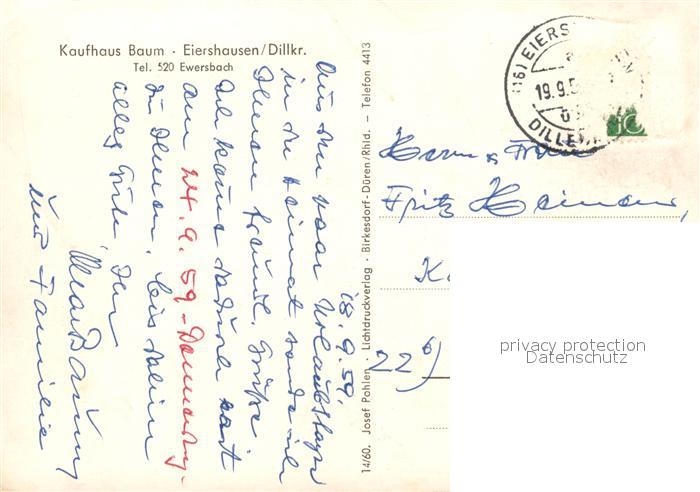 Kaufhaus Baum · Eiershausen/Dillkr.
Tel. 520 Ewersbach
18.9.59.
Aus den paar Urlaubstagen
in der Heimat sende ich
Ihnen freundl. Grüße
Ich komme
am 24.9.59 - Donnerstag -
zu Ihnen, bis dahin
alles Gute Ihr
und Familie
14/60. Josef Pohlen · Lichtdruckverlag · Birkesdorf-Düren/Rhld. — Telefon 4413
(16) EIERS
19.9.5
DILLE
10
Herrn u. Frau
Fritz
K
22
privacy protection
Datenschutz